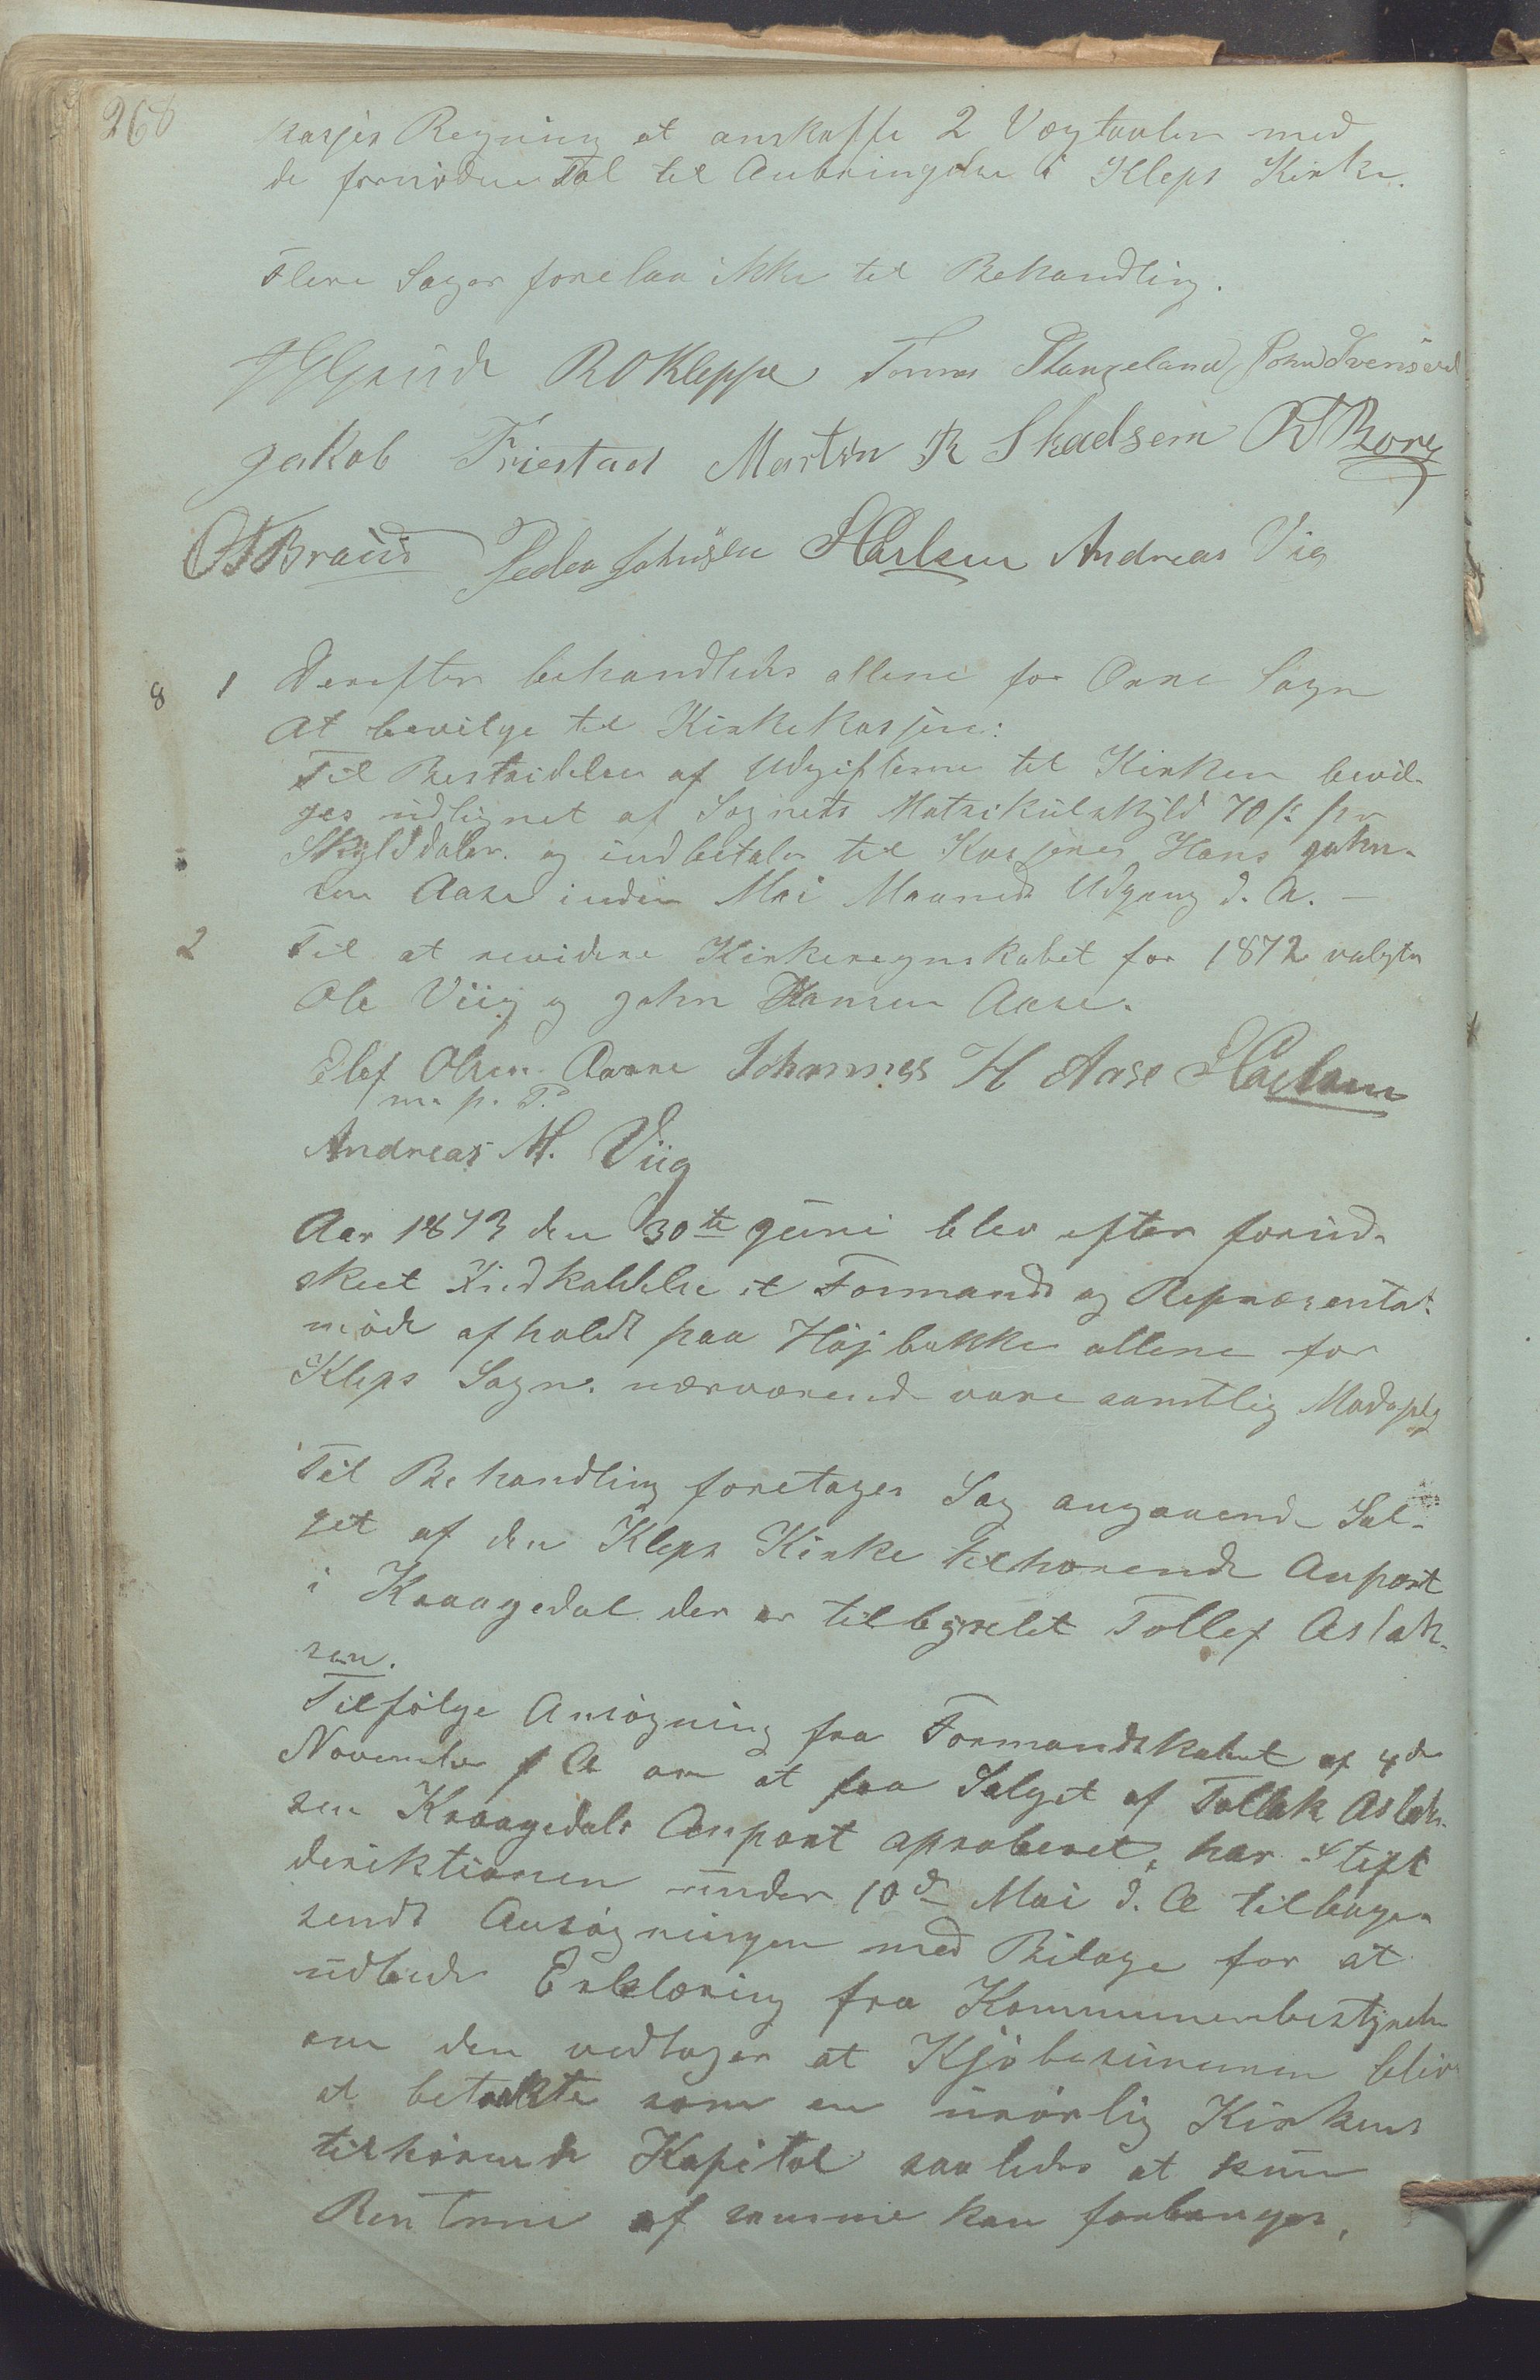 268
kasjes Regning at anskaffe 2 Vegtavler med
de fornødne Tal til Anbringelse i Kleps Kirke.
Flere Sager forelaa ikke til Behandling.
RO Kleppe Tønnes Stangeland John Svensvol
Jakob Friestad Martin R Skadsem Bore
Braud Peder Johnsen HCarlsen Andreas Vig
8 1 Derefter behandledes allene for Orre Sogn
At bevilge til Kirkekasjen:
Til Bestridelse af Udgifterne til Kirken bevil-
ges udlignet af Sognets Matrikulskyld 70 s pr
Skylddaler og indbetales til Kasjerer Hans John-
sen Aase inden Mai Maaneds Udgang d. A. —
2 Til at revidere Kirkeregnskabet for 1872 valgtes
Ole Viig og John Hansen Aase.
Elef Olsen Orre Johannes H Aase HCarlsen
m. p. P.
Andreas M. Viig
Aar 1873 den 30te Juni blev efter forud-
skeet Indkaldelse et Formands og Repræsentat-
møde afholdt paa Højbakke allene for
Kleps Sogn. nærværende vare samtlig Medlg
Til Behandling foretages Sag angaaende Sal-
get af den Kleps Kirke tilhørende Anpart
i Kraagedal der er tilbyxlet Tollef Aslak-
sen.
Tilfølge Ansøgning fra Formandskabet af 4de
November f A om at faa Salget af Tollak Aslak-
sen Kraagedals Anpart aproberet, har Stift
deriktionen under 10de Mai d. A tilbage-
sendt Ansøgningen med Bilage for at
udbede Erklæring fra Kommunenbestyrelse
om den vedtager at Kjøbesummen bliv
at betrakte som en urørlig Kirkens
tilhørende Kapital saaledes at kun
Renterne af samme kan forbruges,